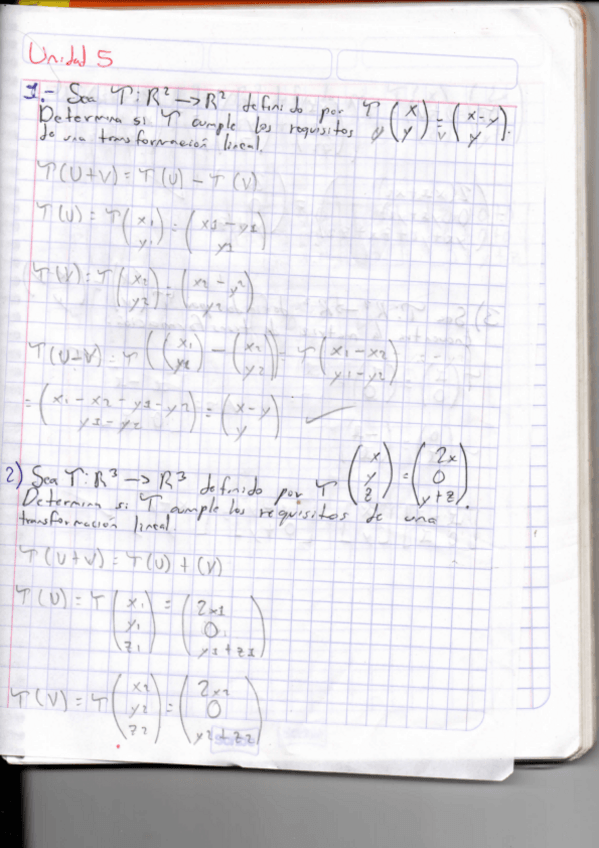 Unidad 5
1.- Sea T: R² → R² definido por T (x y) = (x-y y).
Determina si T cumple los requisitos
de una transformación lineal.
T(U+V) = T(U) - T(V)
T(U) = T (x1 y1) = (x1-y1 y1)
T(V) = T (x2 y2) = (x2-y2 y2)
T(U+V) = T ((x1 y1) - (x2 y2)) = T (x1-x2 y1-y2)
= (x1-x2-y1-y2 y1-y2) = (x-y y) ✓
2) Sea T: R³ → R³ definido por T (x y z) = (2x 0 y+z).
Determina si T cumple los requisitos de una
transformación lineal.
T(U+V) = T(U) + (V)
T(U) = T (x1 y1 z1) = (2x1 0 y1+z1)
T(V) = T (x2 y2 z2) = (2x2 0 y2+z2)